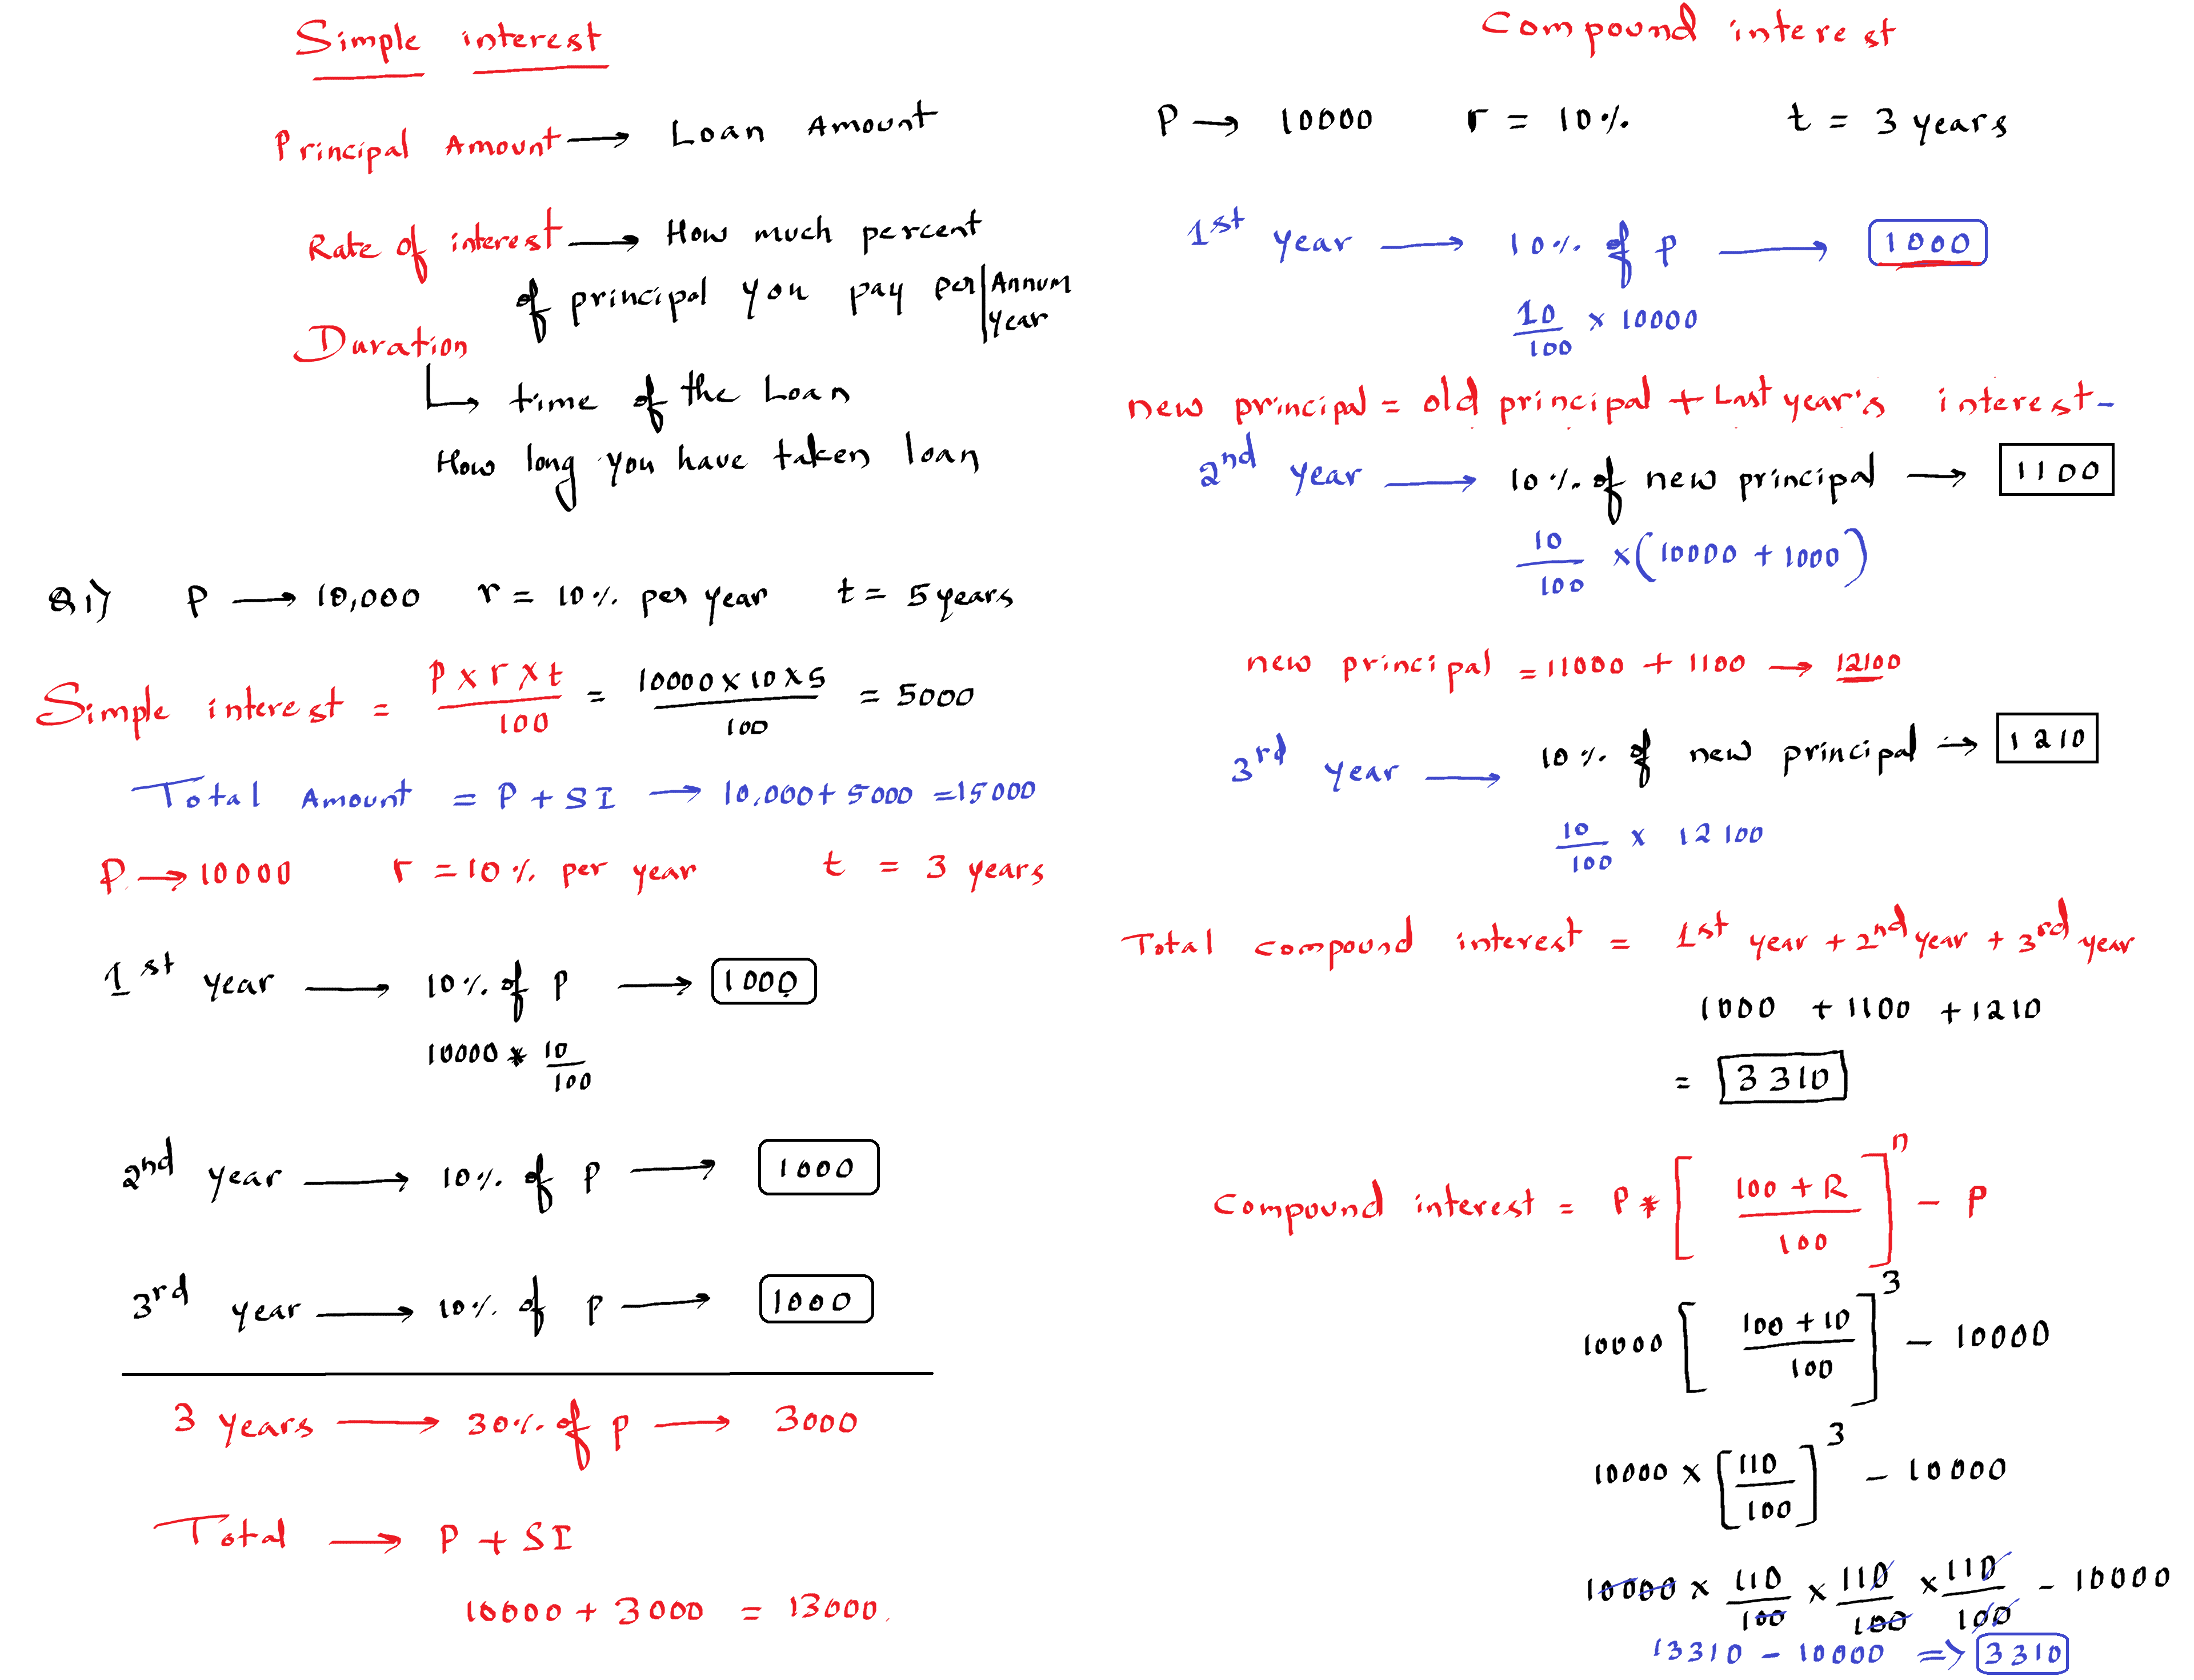 Simple interest
Principal Amount → Loan Amount
Rate of interest → How much percent
of principal you pay per | Annum
year
Duration
↳ time of the Loan
How long you have taken loan
Q1) P → 10,000 r = 10% per year t = 5 years
Simple interest = P x r x t / 100 = 10000 x 10 x 5 / 100 = 5000
Total Amount = P + SI → 10,000 + 5000 = 15000
P → 10000 r = 10% per year t = 3 years
1st year → 10% of P → 1000
10000 * 10/100
2nd year → 10% of P → 1000
3rd year → 10% of P → 1000
3 years → 30% of P → 3000
Total → P + SI
10000 + 3000 = 13000.
Compound interest
P → 10000 r = 10% t = 3 years
1st year → 10% of P → 1000
10/100 x 10000
new principal = old principal + Last year's interest-
2nd year → 10% of new principal → 1100
10/100 x (10000 + 1000)
new principal = 11000 + 1100 → 12100
3rd year → 10% of new principal → 1210
10/100 x 12100
Total compound interest = 1st year + 2nd year + 3rd year
1000 + 1100 + 1210
= 3310
Compound interest = P * [100 + R / 100]^n - P
10000 [100 + 10 / 100]^3 - 10000
10000 x [110/100]^3 - 10000
10000 x 110/100 x 110/100 x 110/100 - 10000
13310 - 10000 => 3310